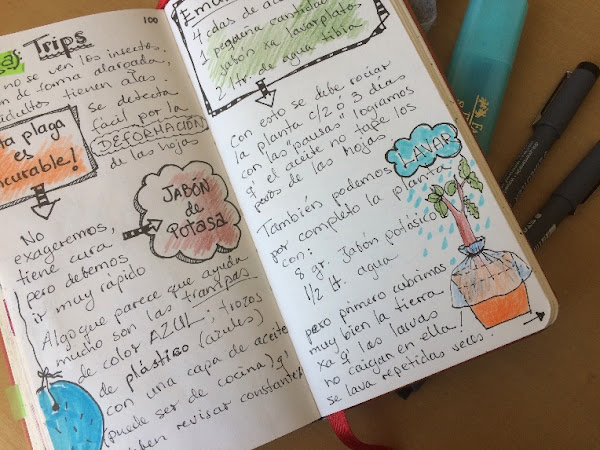 100
Trips
no se ven los insectos.
de forma alargada,
adultos tienen las
se detecta
fácil por la
DEFORMACIÓN
de las hojas
ta plaga
es
curable!
JABÓN
de
POTASA
No
exageremos,
tiene cura
pero debemos
ir muy rápido
Algo que parece que ayuda
mucho son las trampas
de color AZUL: trozos
de plástico (azules)
con una capa de aceite
(puede ser de cocina) q'
revisar
4 cdas de
1 pequeña
jabón xa lavaplatos
1/2 ltr. de agua tibia
Con esto se debe rociar
la planta c/2 ó 3 días
con las "pausas" logramos
q' el aceite no tape los
poros de las hojas.
También podemos
LAVAR
por completo la planta
con:
8 gr. Jabón potásico
1/2 lt. agua
pero primero cubrimos
muy bien la tierra
xa q' las larvas
no caigan en ella!
se lava repetidas veces.